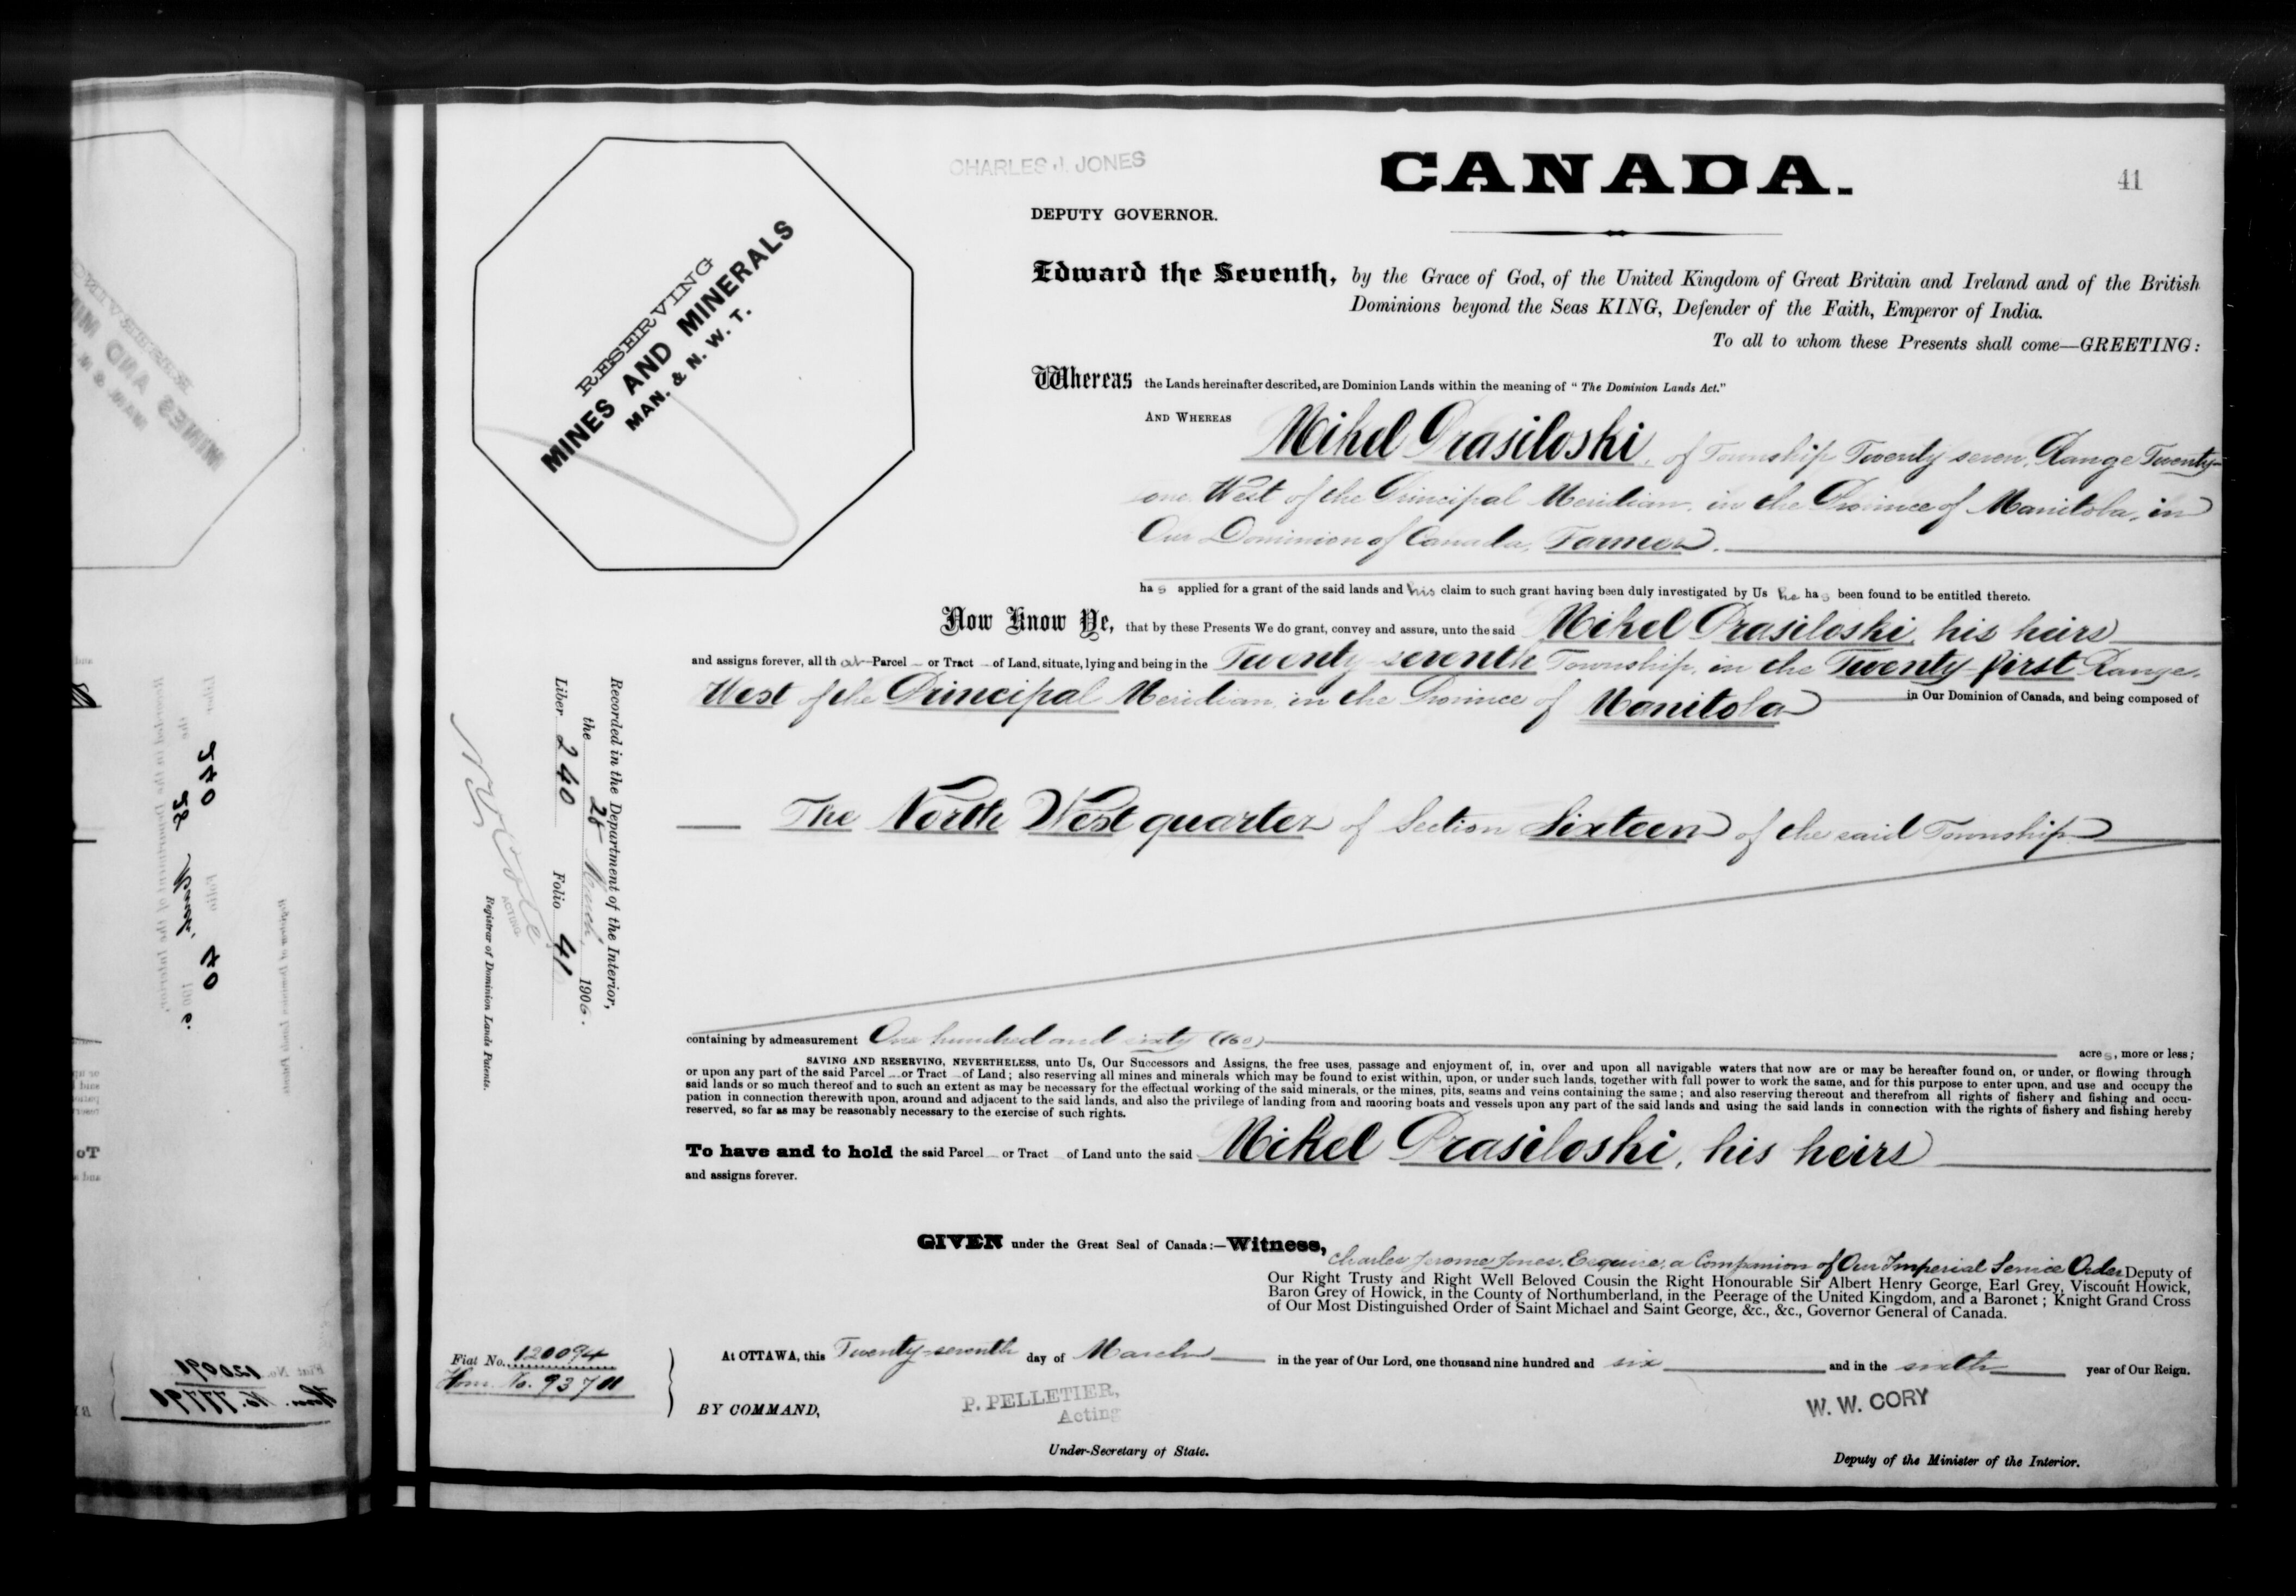 CHARLES J. JONES
CANADA.
41
DEPUTY GOVERNOR.
RESERVING
MINES AND MINERALS
MAN. & N. W. T.
Edward the Seventh, by the Grace of God, of the United Kingdom of Great Britain and Ireland and of the British
Dominions beyond the Seas KING, Defender of the Faith, Emperor of India.
To all to whom these Presents shall come—GREETING:
Whereas the Lands hereinafter described, are Dominion Lands within the meaning of "The Dominion Lands Act."
AND WHEREAS Mikel Prasiloski, of Township Twenty seven, Range Twenty-
one West of the Principal Meridian, in the Province of Manitoba, in
Our Dominion of Canada, Farmer.
has applied for a grant of the said lands and his claim to such grant having been duly investigated by Us he has been found to be entitled thereto.
Now Know Ye, that by these Presents We do grant, convey and assure, unto the said Mikel Prasiloski, his heirs
and assigns forever, all that Parcel or Tract of Land, situate, lying and being in the Twenty-seventh Township, in the Twenty-first Range,
West of the Principal Meridian, in the Province of Manitoba in Our Dominion of Canada, and being composed of
The North West quarter of Section Sixteen of the said Township
containing by admeasurement One hundred and sixty (160) acres, more or less;
SAVING AND RESERVING, NEVERTHELESS, unto Us, Our Successors and Assigns, the free uses, passage and enjoyment of, in, over and upon all navigable waters that now are or may be hereafter found on, or under, or flowing through
or upon any part of the said Parcel or Tract of Land; also reserving all mines and minerals which may be found to exist within, upon, or under such lands, together with full power to work the same, and for this purpose to enter upon, and use and occupy the
said lands or so much thereof and to such an extent as may be necessary for the effectual working of the said minerals, or the mines, pits, seams and veins containing the same; and also reserving thereout and therefrom all rights of fishery and fishing and occu-
pation in connection therewith upon, around and adjacent to the said lands, and also the privilege of landing from and mooring boats and vessels upon any part of the said lands and using the said lands in connection with the rights of fishery and fishing hereby
reserved, so far as may be reasonably necessary to the exercise of such rights.
To have and to hold the said Parcel or Tract of Land unto the said Mikel Prasiloski, his heirs
and assigns forever.
GIVEN under the Great Seal of Canada:—Witness, Charles Jerome Jones, Esquire, a Companion of Our Imperial Service Order Deputy of
Our Right Trusty and Right Well Beloved Cousin the Right Honourable Sir Albert Henry George, Earl Grey, Viscount Howick,
Baron Grey of Howick, in the County of Northumberland, in the Peerage of the United Kingdom, and a Baronet; Knight Grand Cross
of Our Most Distinguished Order of Saint Michael and Saint George, &c., &c., Governor General of Canada.
At OTTAWA, this Twenty-seventh day of March in the year of Our Lord, one thousand nine hundred and six and in the sixth year of Our Reign.
BY COMMAND,
P. PELLETIER,
Acting
Under-Secretary of State.
W. W. CORY
Deputy of the Minister of the Interior.
Fiat No. 120094
Hom. No. 93711
Recorded in the Department of the Interior,
the 28 March, 1906.
Liber 240 Folio 41
ACTING
Registrar of Dominion Lands Patents.